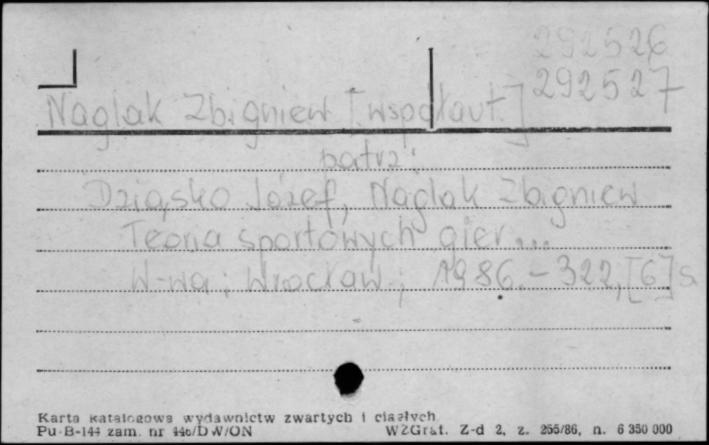 292526
292527
Naglak Zbigniew [współaut.]
patrz:
Dziąsko Józef, Naglak Zbigniew
Teoria sportowych gier...
W-wa ; Wrocław ; 1986. - 322, [6] s
Karta katalogowa wydawnictw zwartych i ciągłych
Pu-B-144 zam. nr 446/DW/ON WZGraf. Z-d 2, z. 255/86, n. 6 350 000